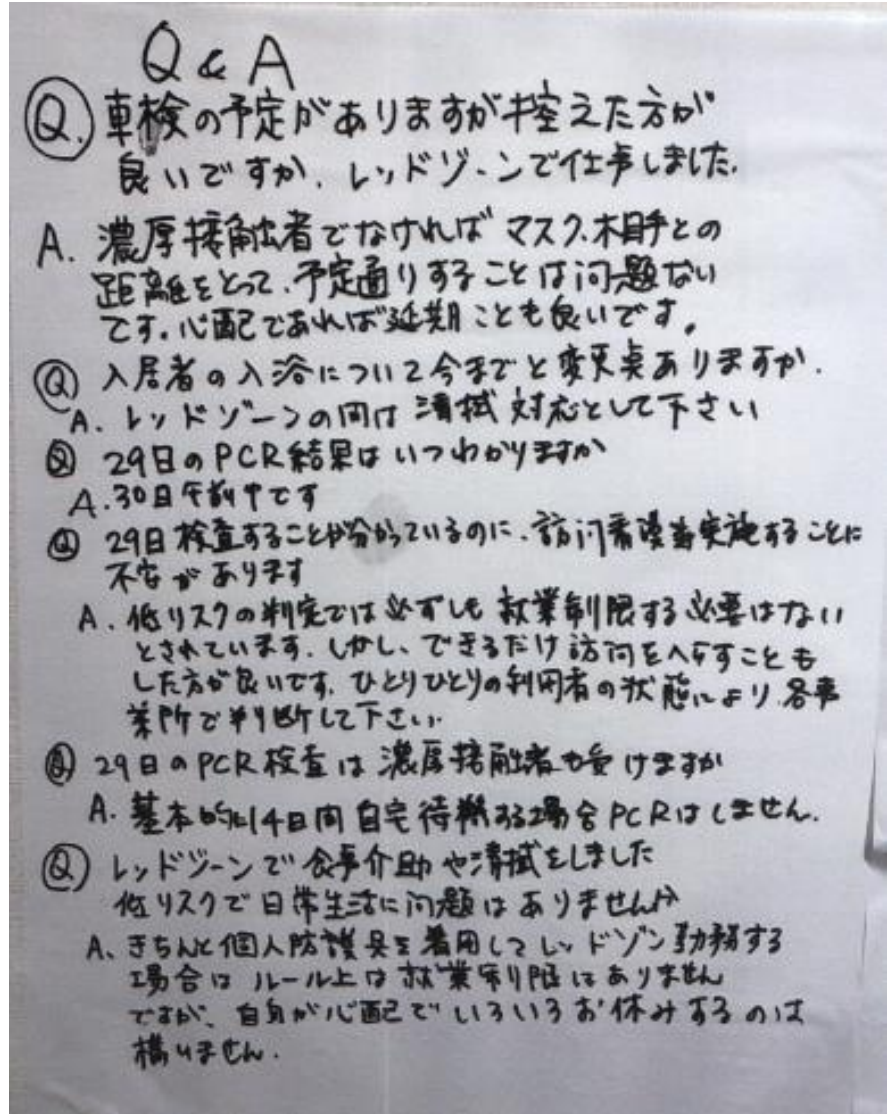 Q & A
Q. 車検の予定がありますが控えた方が
良いですか、レッドゾーンで仕事しました。
A. 濃厚接触者でなければマスク、相手との
距離をとって、予定通りすることは问題ない
です。心配であれば延期ことも良いです。
Q 入居者の入浴について今までと変更奌ありますか.
A. レッドゾーンの间は清拭対応として下さい
Q 29日のPCR結果はいつわかりますか
A. 30日午前中です
Q 29日検査することが分かっているのに、訪问看護等実施することに
不安があります
A. 低リスクの判定では必ずしも就業制限する必要はない
とされています。しかし、できるだけ訪问をへらすことも
した方が良いです。ひとりひとりの利用者の状態により、各事
業所で判断して下さい.
Q 29日のPCR検査は濃厚接触者も受けますか
A. 基本的に14日间自宅待機する場合PCRはしません.
Q レッドゾーンで食事介助や清拭をしました
低リスクで日常生活に问題はありませんか
A、きちんと個人防護具を着用してレッドゾン勤務する
場合はルール上は就業制限はありません
ですが、自身が心配でいろいろお休みするのは
構いません.